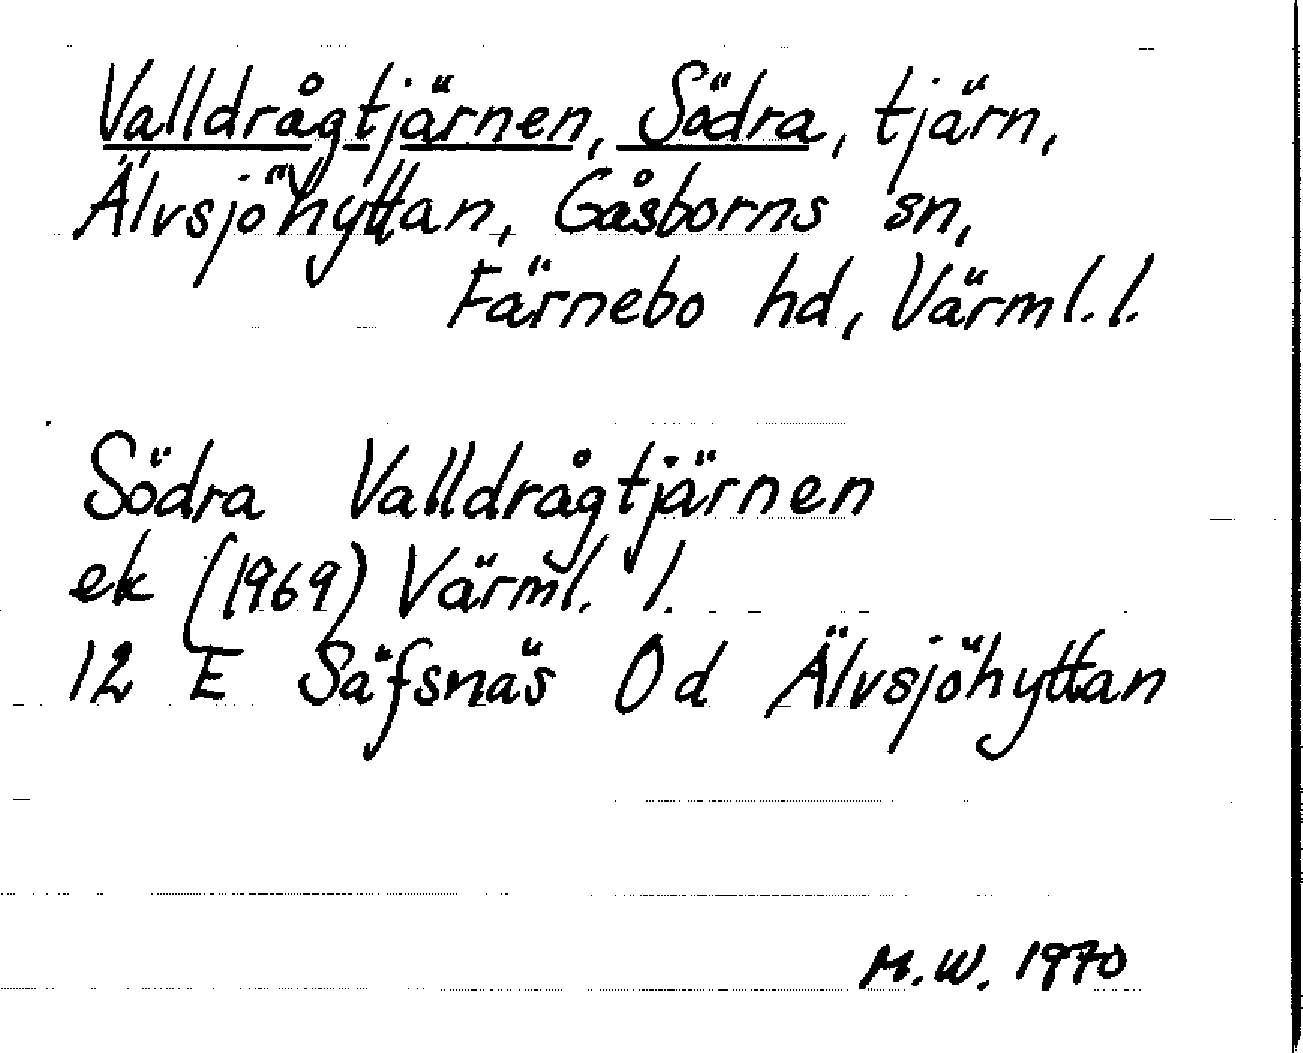 Valldrågtjärnen, Södra, tjärn,
Älvsjöhyttan, Gåsborns sn,
Färnebo hd, Värml. l.
Södra Valldrågtjärnen
ek (1969) Värml. l.
12 E Säfsnäs 0d Älvsjöhyttan
M.W. 1970